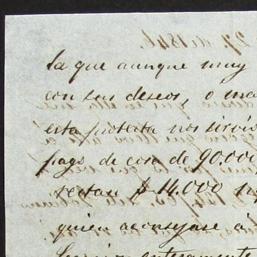 la que aunque muy
con sus deseos, o ma
esta protesta nos sirvió
pago de cosa de 90.000
restan $14.000 pa
quien aconsejase á